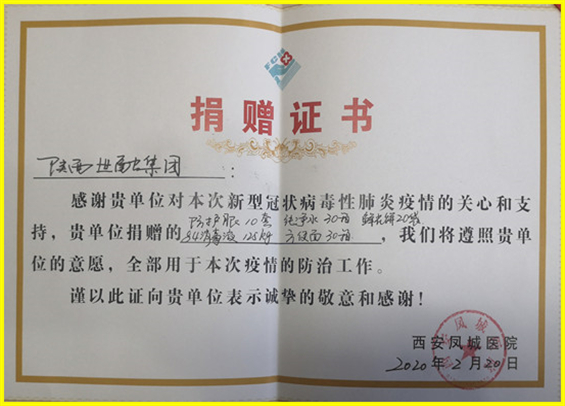 捐赠证书
陕西世融集团:
感谢贵单位对本次新型冠状病毒性肺炎疫情的关心和支
防护服10套 纯净水30箱
持,贵单位捐赠的84消毒液125kg 方便面30箱,我们将遵照贵单
位的意愿,全部用于本次疫情的防治工作。
谨以此证向贵单位表示诚挚的敬意和感谢!
西安凤城医院
2020年2月20日